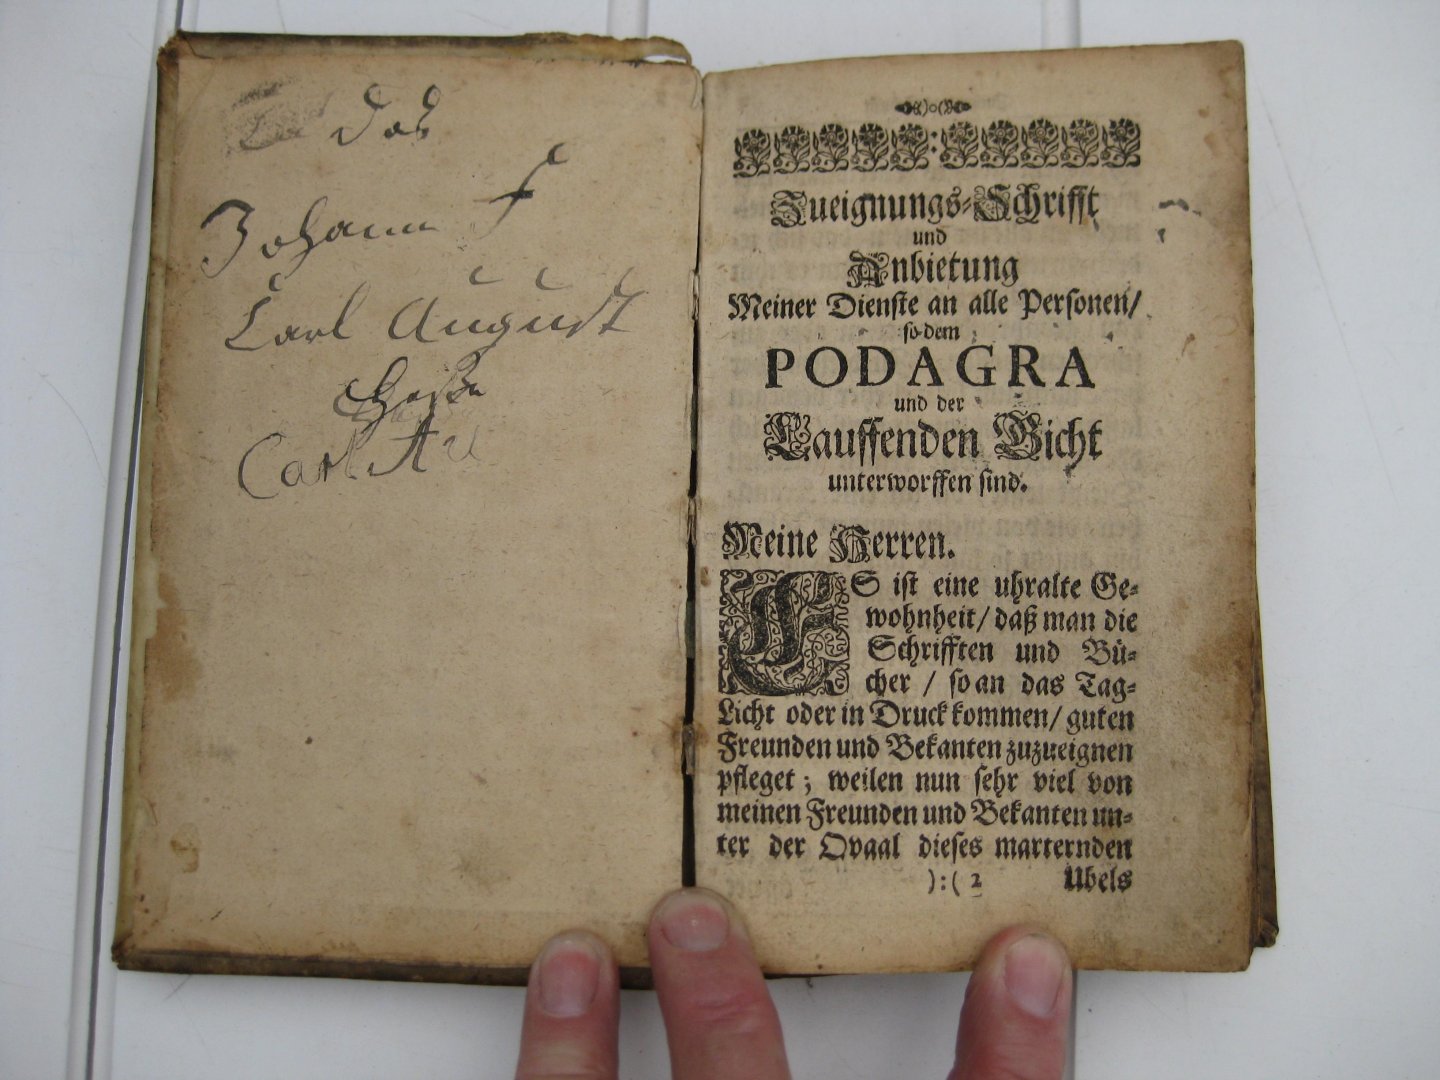 Das
Johann F
Carl August
Carl Au
Zueignungs-Schrifft
und
Anbietung
Meiner Dienste an alle Personen/
so dem
PODAGRA
und der
Lauffenden Gicht
unterworffen sind.
Meine Herren.
ES ist eine uhralte Ge-
wohnheit/ daß man die
Schrifften und Bü-
cher / so an das Tag-
Licht oder in Druck kommen/ guten
Freunden und Bekanten zuzueignen
pfleget; weilen nun sehr viel von
meinen Freunden und Bekanten un-
ter der Qvaal dieses marternden
):( 2 Ubels